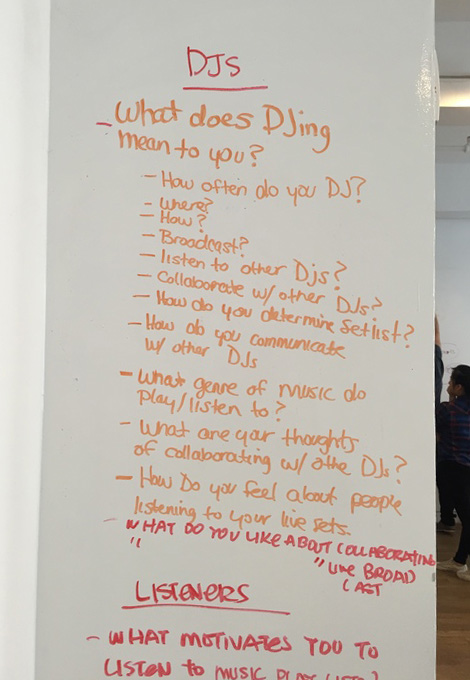 DJs
- What does DJing
mean to you?
- How often do you DJ?
- Where?
- How?
- Broadcast?
- listen to other Djs?
- Collaborate w/ other DJs?
- How do you determine setlist?
- How do you communicate
w/ other DJs
- What genre of music do
play/listen to?
- What are your thoughts
of collaborating w/ othe DJs?
- How Do you feel about people
listening to your live sets.
- WHAT DO YOU LIKE ABOUT COLLABORATING
" " LIVE BROAD
CAST
LISTENERS
- WHAT MOTIVATES YOU TO
LISTEN to MUSIC